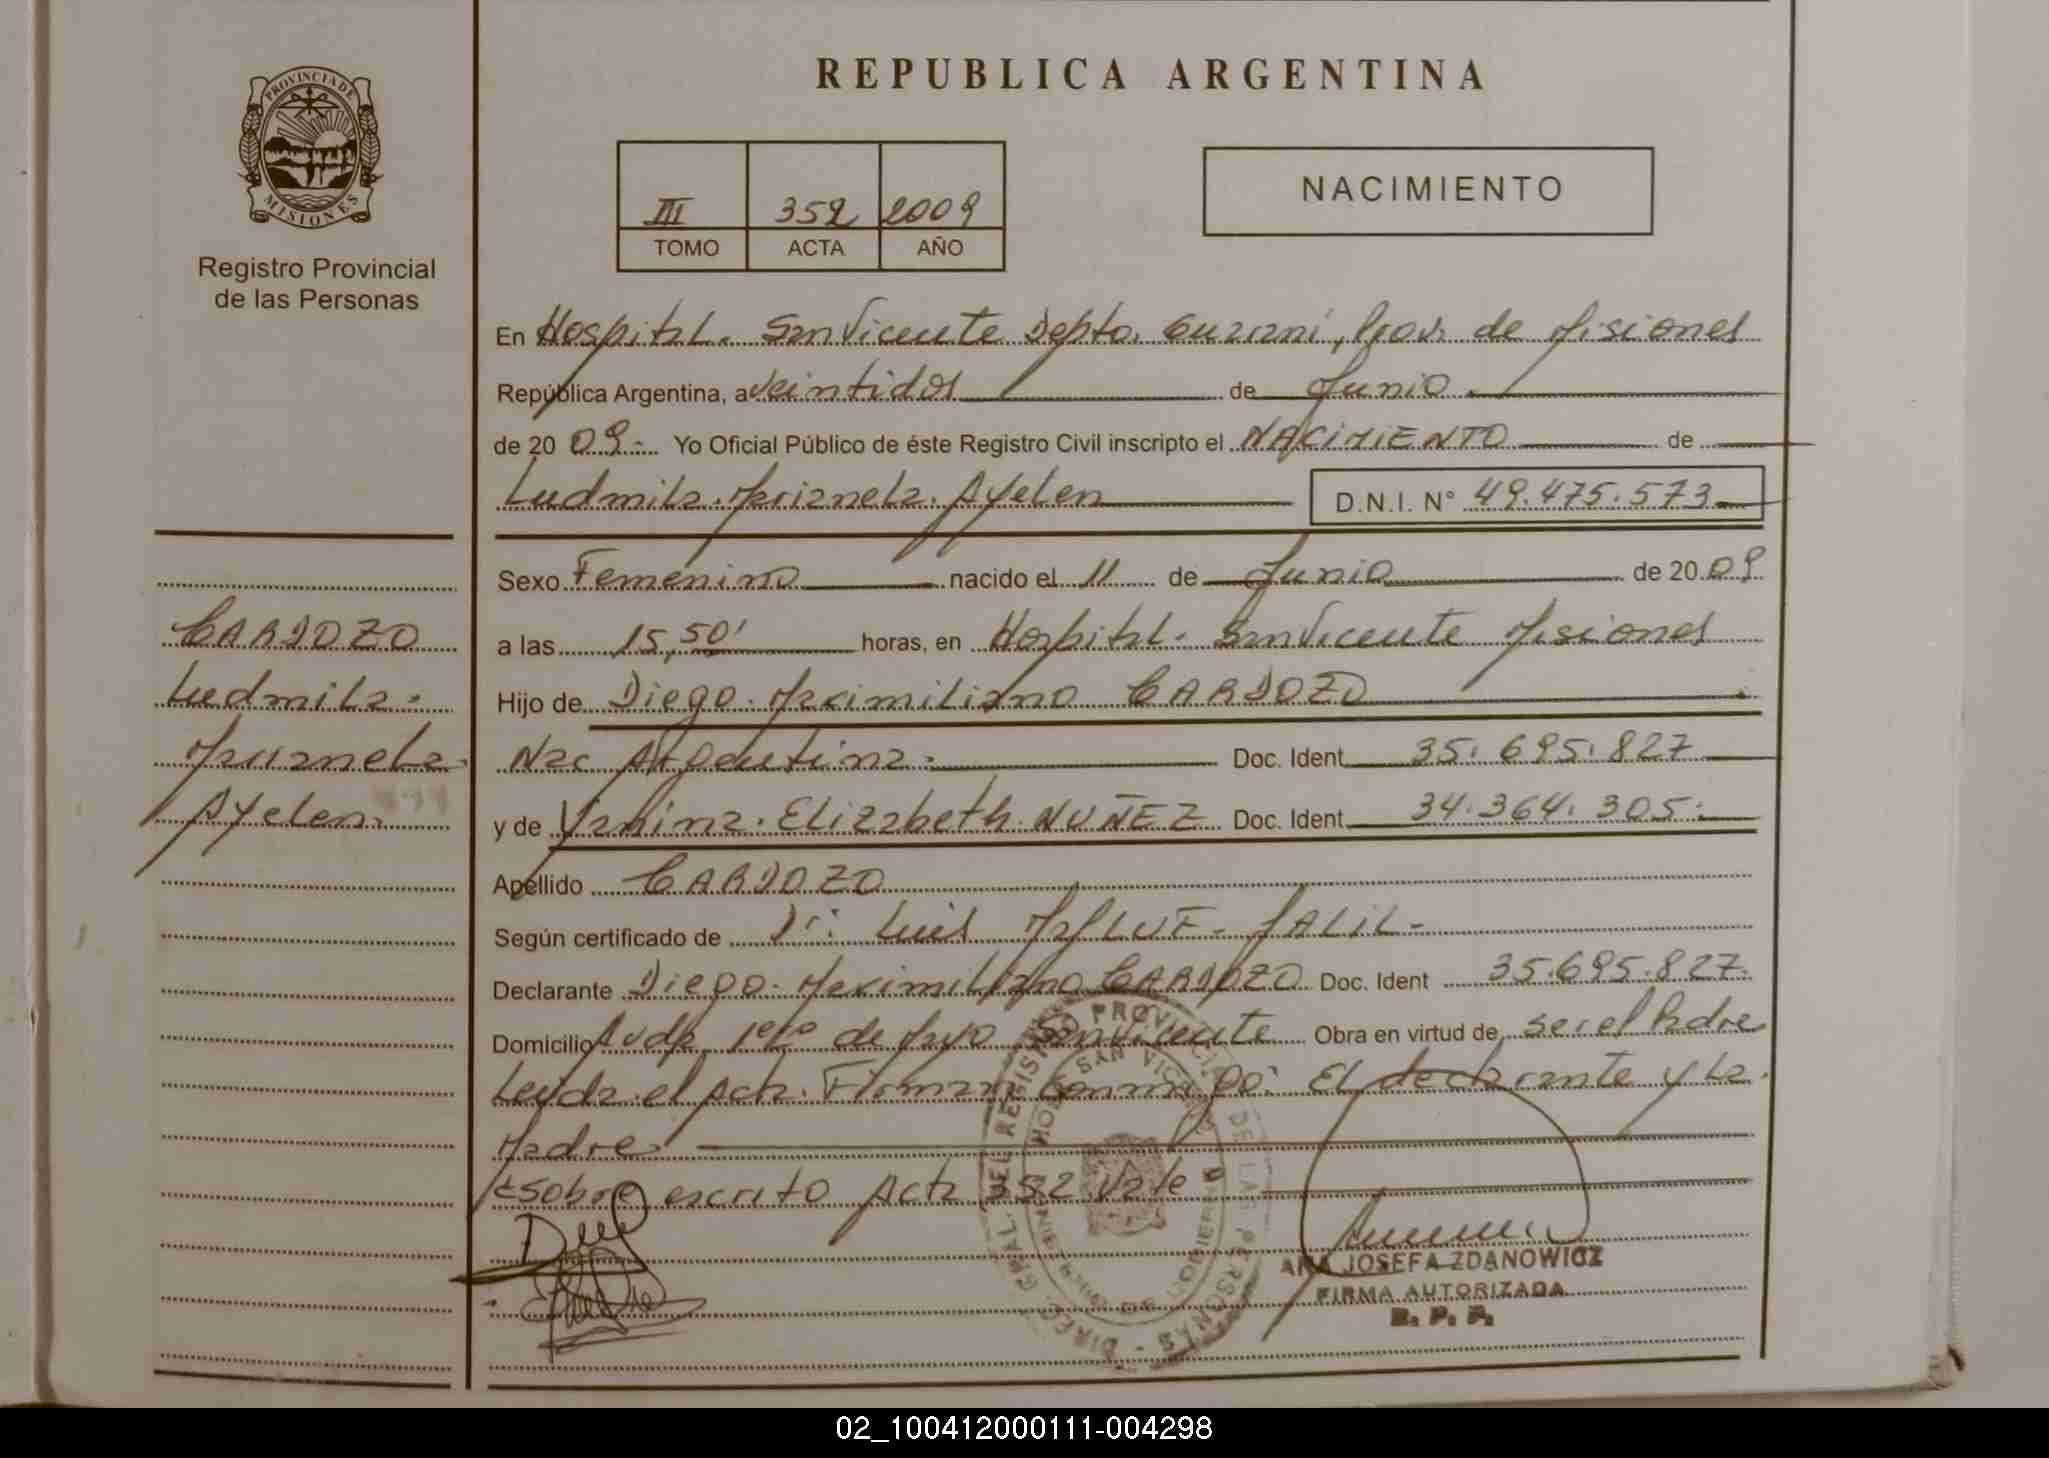 PROVINCIA DE
MISIONES
Registro Provincial
de las Personas
REPUBLICA ARGENTINA
III 352 2009
TOMO ACTA AÑO
NACIMIENTO
En Hospital. San Vicente Depto. Guarani, Prov. de Misiones
República Argentina, a veintidos de Junio
de 20 09.- Yo Oficial Público de éste Registro Civil inscripto el NACIMIENTO de
Ludmila. Marianela. Ayelen D.N.I. N° 49.475.573
Sexo Femenino nacido el 11 de Junio de 20 09
a las 15,50' horas, en Hospital. San Vicente Misiones
Hijo de Diego. Maximiliano CARDOZO
Nac Argentina. Doc. Ident 35.695.827
y de Yanina. Elizabeth NUÑEZ Doc. Ident 34.364.305.
Apellido CARDOZO
Según certificado de Dr: Luis JALIL-
Declarante Diego. Maximiliano CARDOZO Doc. Ident 35.695.827.
Domicilio Avda. 1ero de Mayo San Vicente Obra en virtud de ser el Padre
Leyda el Acta. Firman conmigo: El declarante y la
Madre
sobre escrito Acta 352 Vale
CARDOZO
Ludmila.
Marianela.
Ayelen.
DIREC. GRAL. DEL REGISTRO PROVINCIAL DE LAS PERSONAS
SAN VICENTE
ANA JOSEFA ZDANOWICZ
FIRMA AUTORIZADA
R. P. P.
02_100412000111-004298